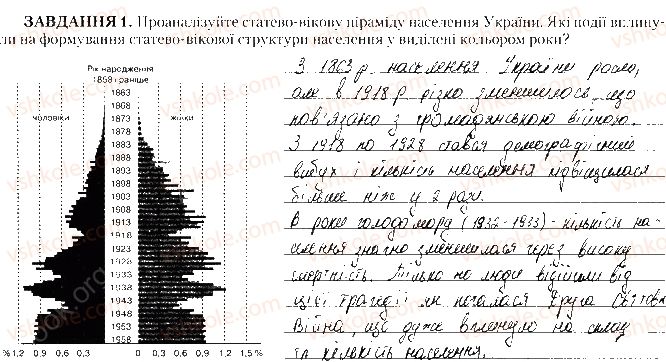 ЗАВДАННЯ 1. Проаналізуйте статево-вікову піраміду населення України. Які події вплину-
ли на формування статево-вікової структури населення у виділені кольором роки?
Рік народження
1858 і раніше
1863
1868
1873
1878
1883
1888
1893
1898
1903
1908
1913
1918
1923
1928
1933
1938
1943
1948
1953
1958
чоловіки
жінки
% 1,2 0,9 0,6 0,3 0 0 0,3 0,6 0,9 1,2 1,5 %
З 1863 р населення України росло,
але в 1918 р різко зменшилось, що
пов'язано з громадянською війною.
З 1918 по 1928 стався демографічний
вибух і кількість населення підвищилася
більше ніж у 2 рази.
В роки голодомору (1932-1933) - кількість на-
селення значно зменшилася через високу
смертність. Тільки но люди відійшли від
цієї трагедії як почалася Друга Світова
Війна, що дуже вплинуло на склад
та кількість населення.